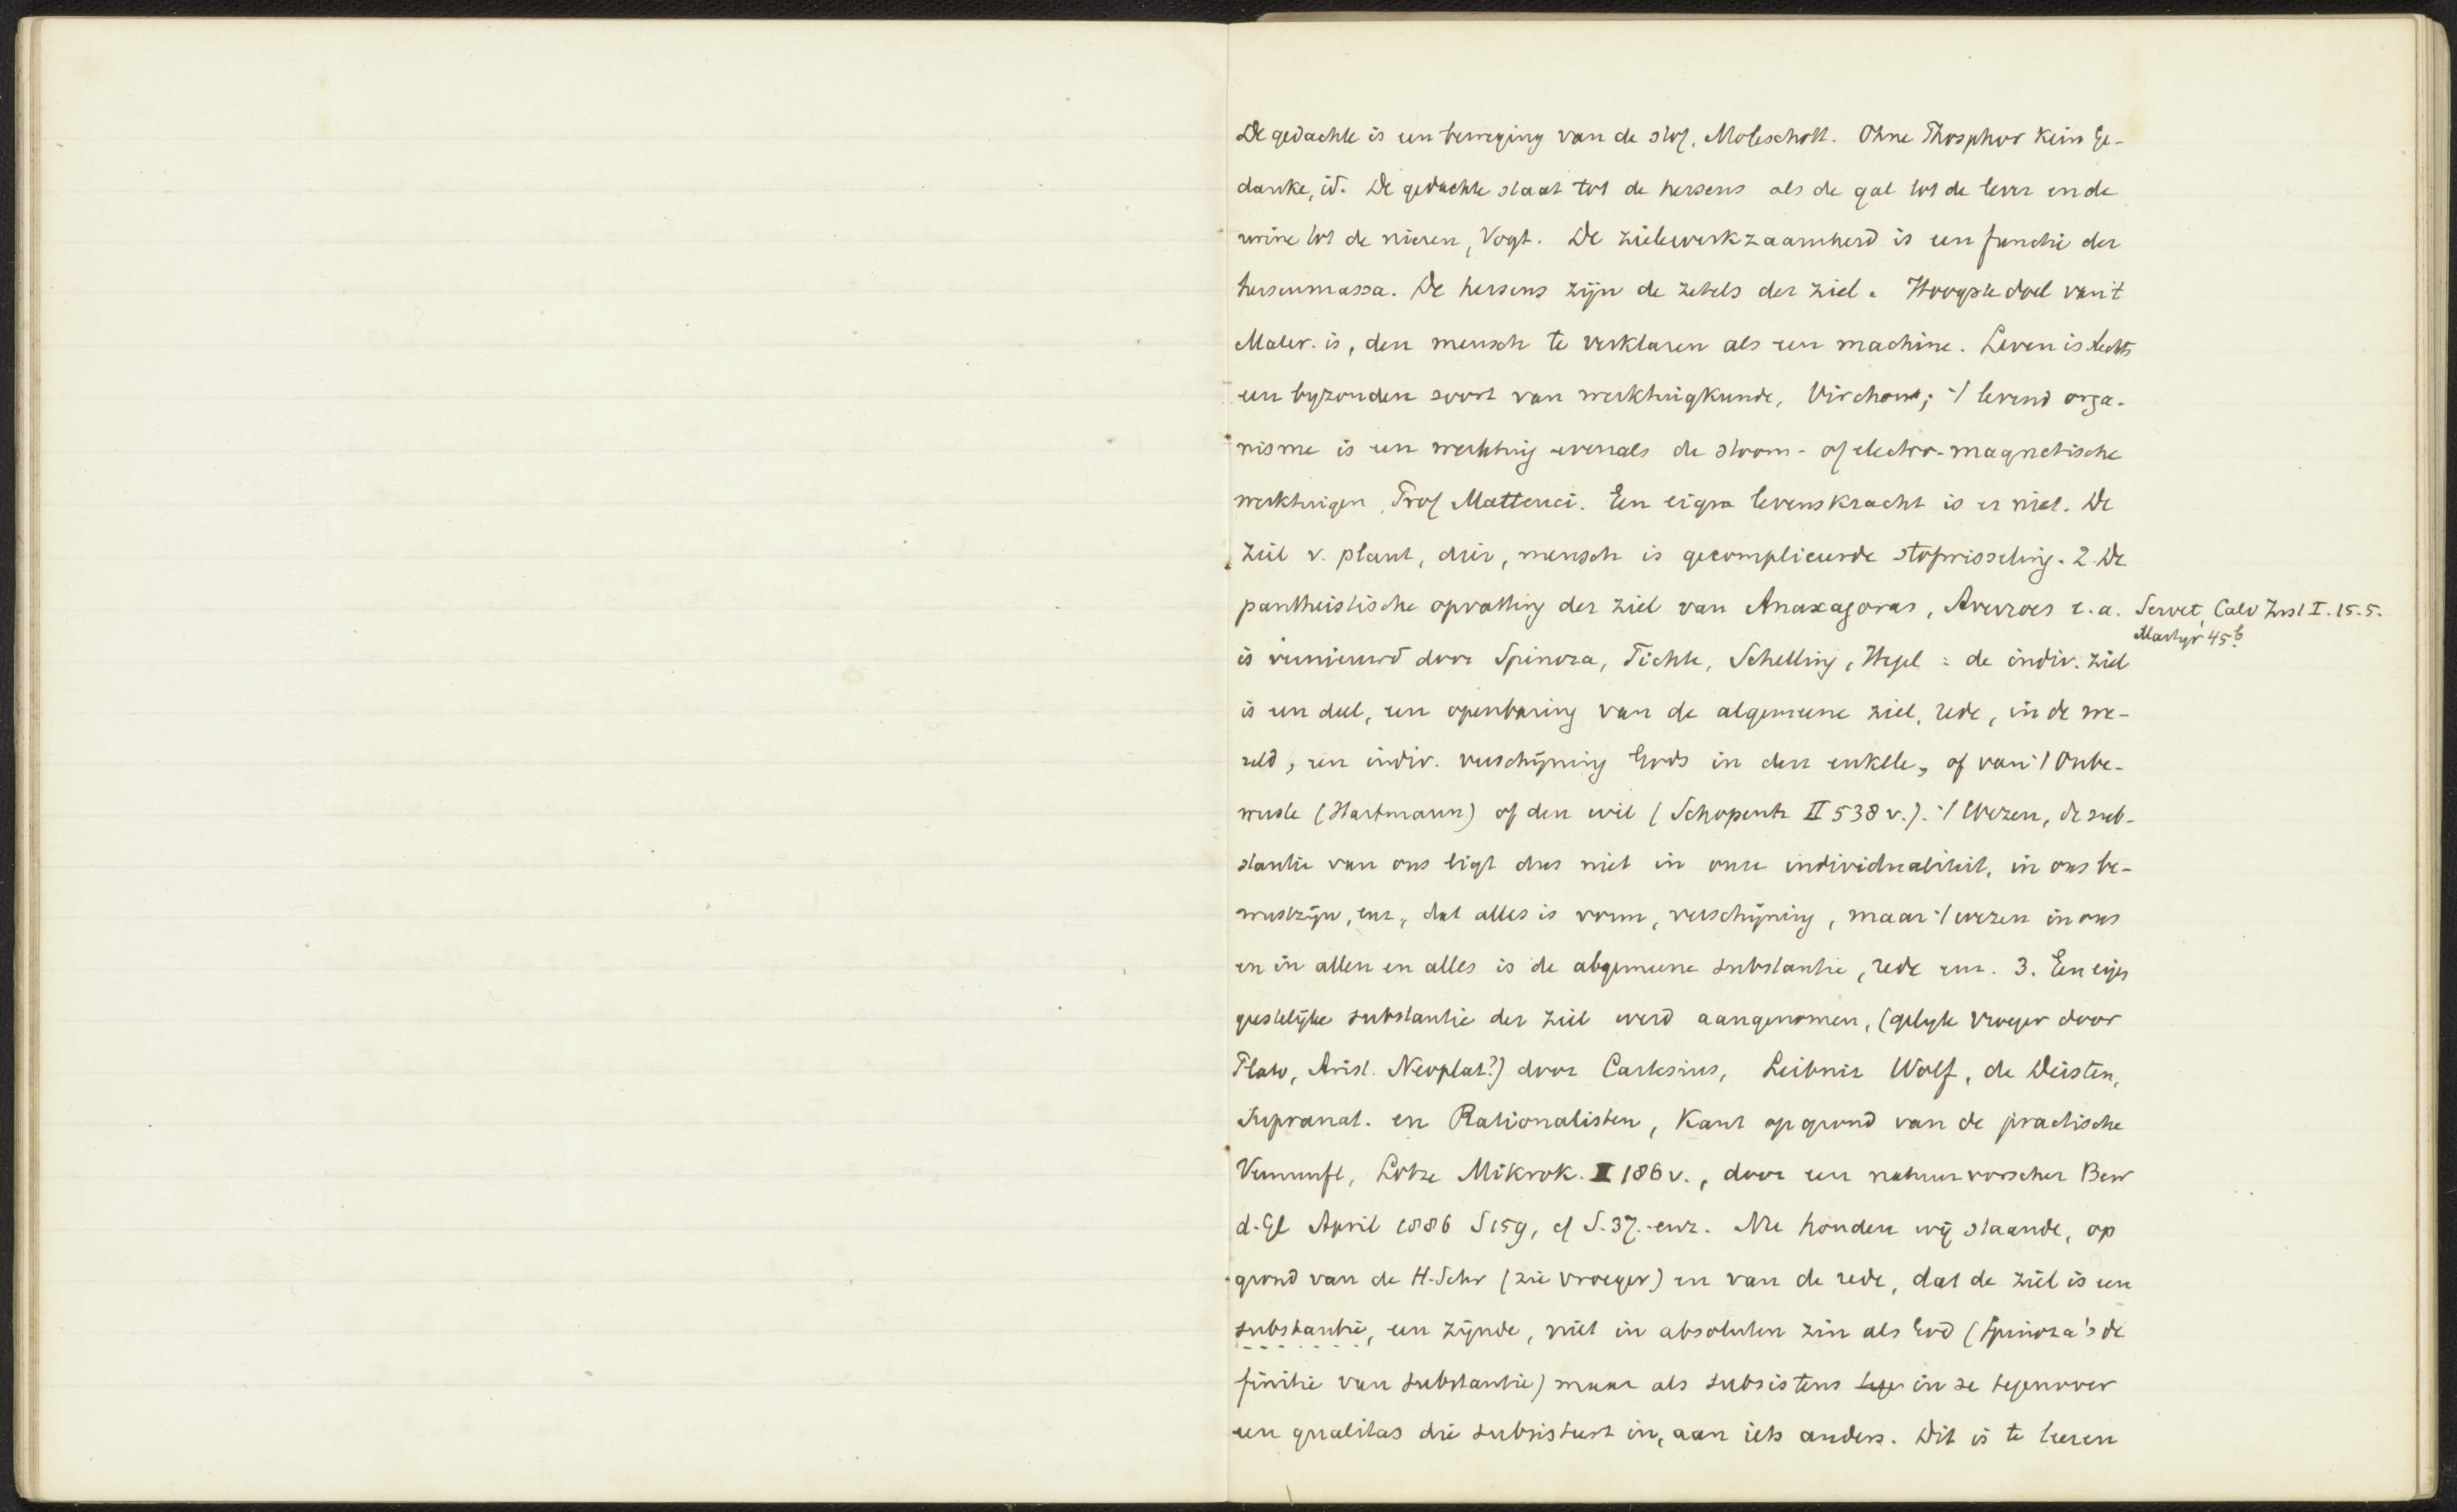 De gedachte is een beweging van de stof, Moleschott. Ohne Phosphor kein Ge-
danke, id. De gedachte staat tot de hersens als de gal tot de lever en de
urine tot de nieren, Vogt. De zielewerkzaamheid is een functie der
hersenmassa. De hersens zijn de zetels der ziel. Hoogste doel van 't
Mater. is, den mensch te verklaren als een machine. Leven is slechts
een byzondere soort van werktuigkunde, Virchow; 't levend orga-
nisme is een werktuig evenals de stoom- of electro-magnetische
werktuigen, Prof Matteuci. Een eigen levenskracht is er niet. De
ziel v. plant, dier, mensch is gecompliceerde stofwisseling. 2. De
pantheistische opvatting der ziel van Anaxagoras, Averroes e.a. Servet, Calv Inst I. 15. 5.
Martyr 45b
is vernieuwd door Spinoza, Fichte, Schelling, Hegel: de indiv. ziel
is een deel, een openbaring van de algemeene ziel, rede, in de we-
reld, een indiv. verschijning Gods in den enkele, of van 't Onbe-
wuste (Hartmann) of den wil (Schopenh II 538 v.). 't Wezen, de sub-
stantie van ons ligt dus niet in onze individualiteit, in ons be-
wustzijn, enz., dat alles is vorm, verschijning, maar 't wezen in ons
en in allen en alles is de algemeene substantie, rede enz. 3. Een eigen
geestelijke substantie der ziel werd aangenomen, (gelijk vroeger door
Plato, Arist. Neoplat?) door Cartesius, Leibniz Wolf, de Deisten,
Supranat. en Rationalisten, Kant op grond van de practische
Vernunft, Lotze Mikrok. I 186 v., door een natuurvorscher Bew
d. Gl April 1886 S 159, cf S. 37. enz. Nu houden wij staande, op
grond van de H. Schr (zie vroeger) en van de rede, dat de ziel is een
substantie, een zijnde, niet in absoluten zin als God (Spinoza's de
finitie van substantie) maar als subsistens in se tegenover
een qualitas die subsisteert in, aan iets anders. Dit is te leeren